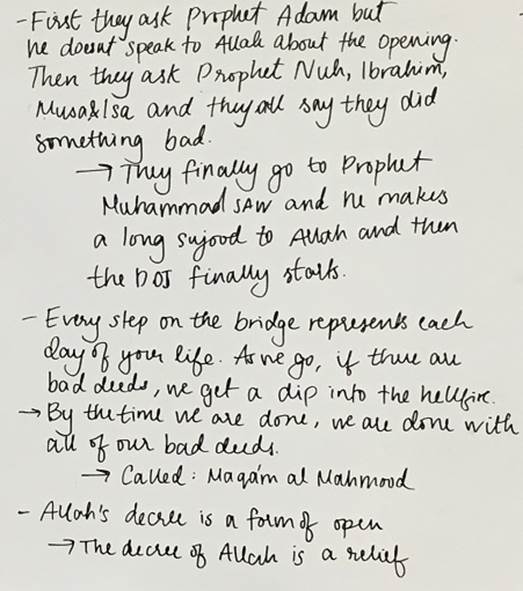 - First they ask Prophet Adam but
he doesnt speak to Allah about the opening.
Then they ask Prophet Nuh, Ibrahim,
Musa & Isa and they all say they did
something bad.
→ They finally go to Prophet
Muhammad SAW and he makes
a long sujood to Allah and then
the DOJ finally starts.
- Every step on the bridge represents each
day of your life. As we go, if there are
bad deeds, we get a dip into the hellfire.
→ By the time we are done, we are done with
all of our bad deeds.
→ Called: Maqám al Mahmood
- Allah's decree is a form of open
→ The decree of Allah is a relief